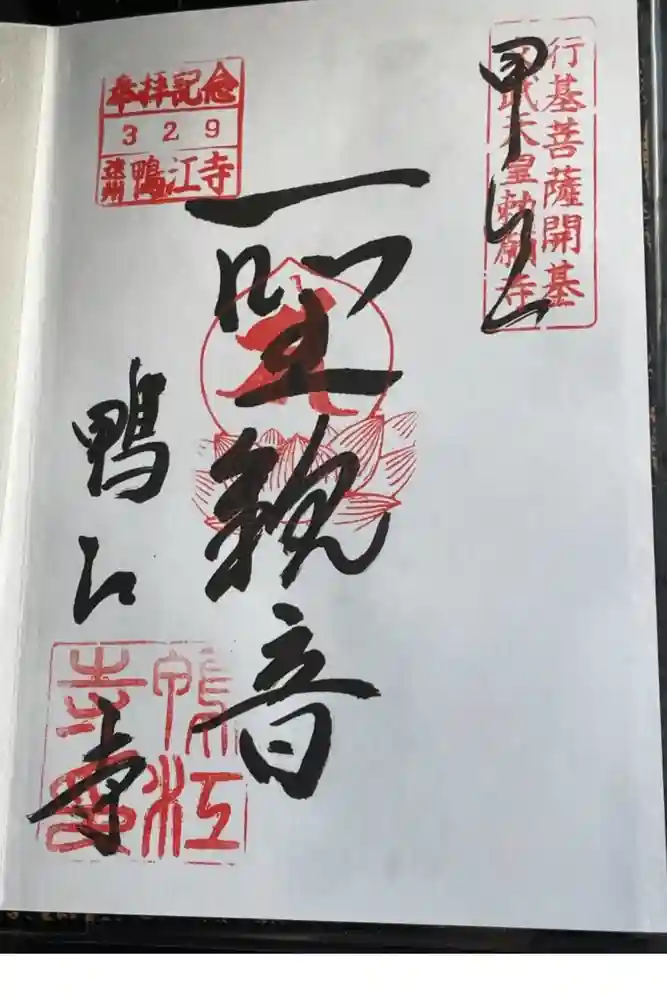 行基菩薩開基
聖武天皇勅願寺
甲江山
聖観音
奉拝記念
3 2 9
遠州 鴨江寺
鴨江寺
鴨江
寺印